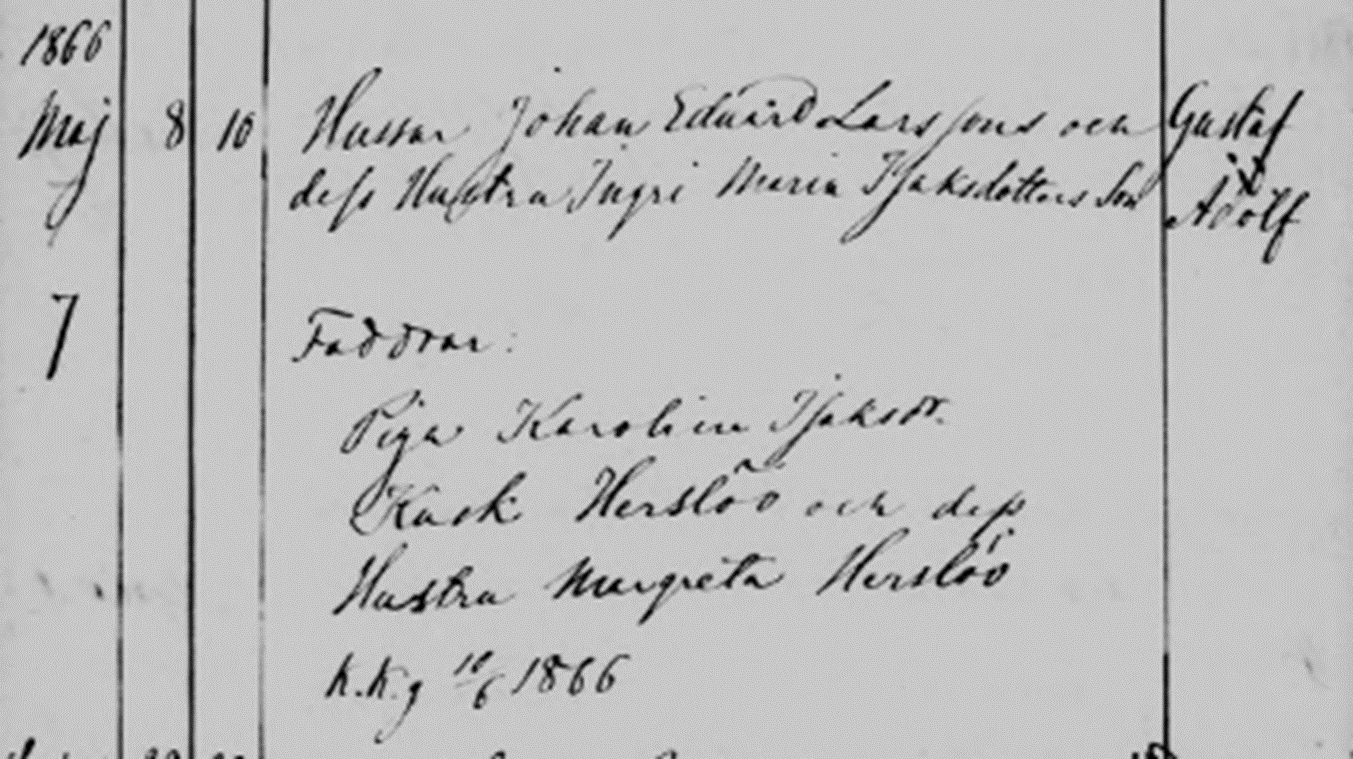 1866
Maj 8 10 Hussar Johan Eduard Larssons och Gustaf
dess Hustru Ingri Maria Isaksdotters Son Adolf
7
Faddrar:
Piga Karolin Isaksdr.
Kusk Herslöv och dess
Hustru Margreta Herslöv
K.K.g 10/6 1866